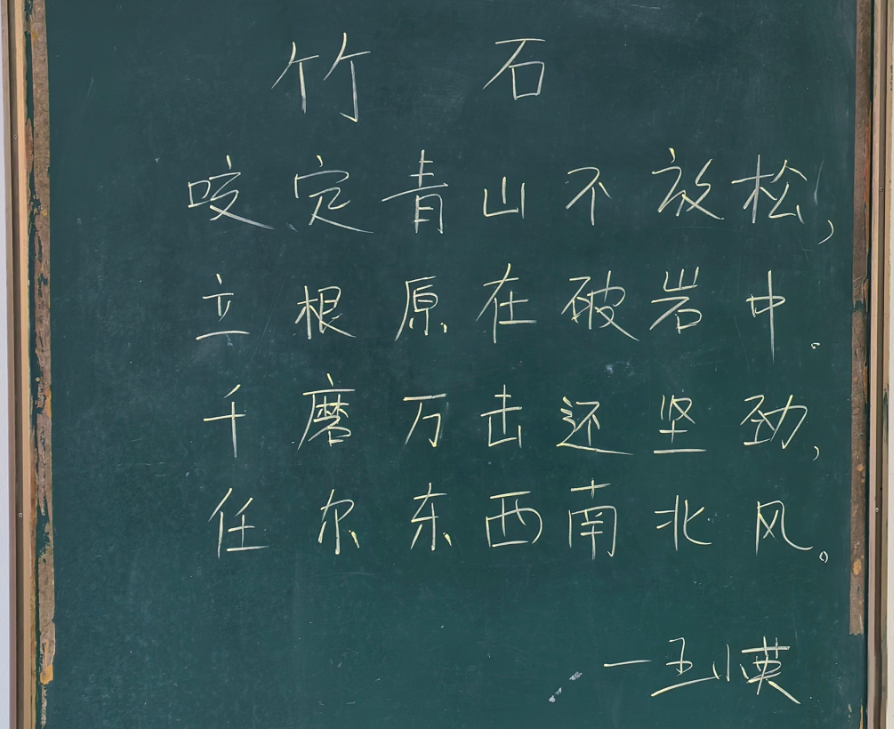 竹 石
咬定青山不放松,
立根原在破岩中。
千磨万击还坚劲,
任尔东西南北风。
一王小英